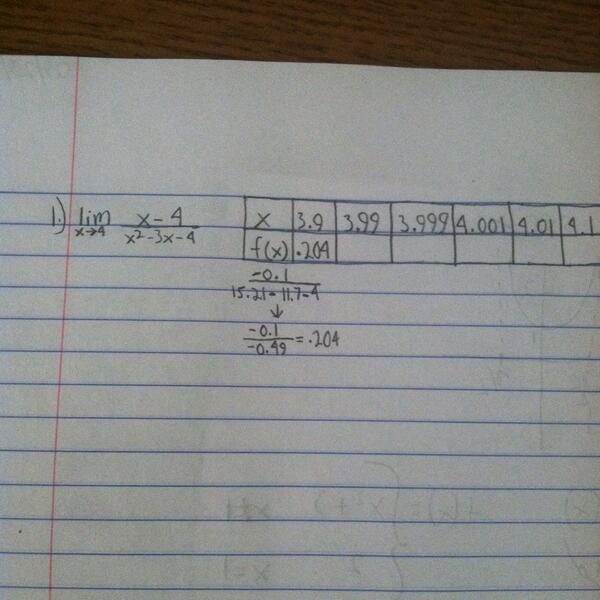 1.) lim x→4 x-4 / x²-3x-4
x 3.9 3.99 3.999 4.001 4.01 4.1
f(x) .204
-0.1
15.21-11.7-4
↓
-0.1 / -0.49 = .204